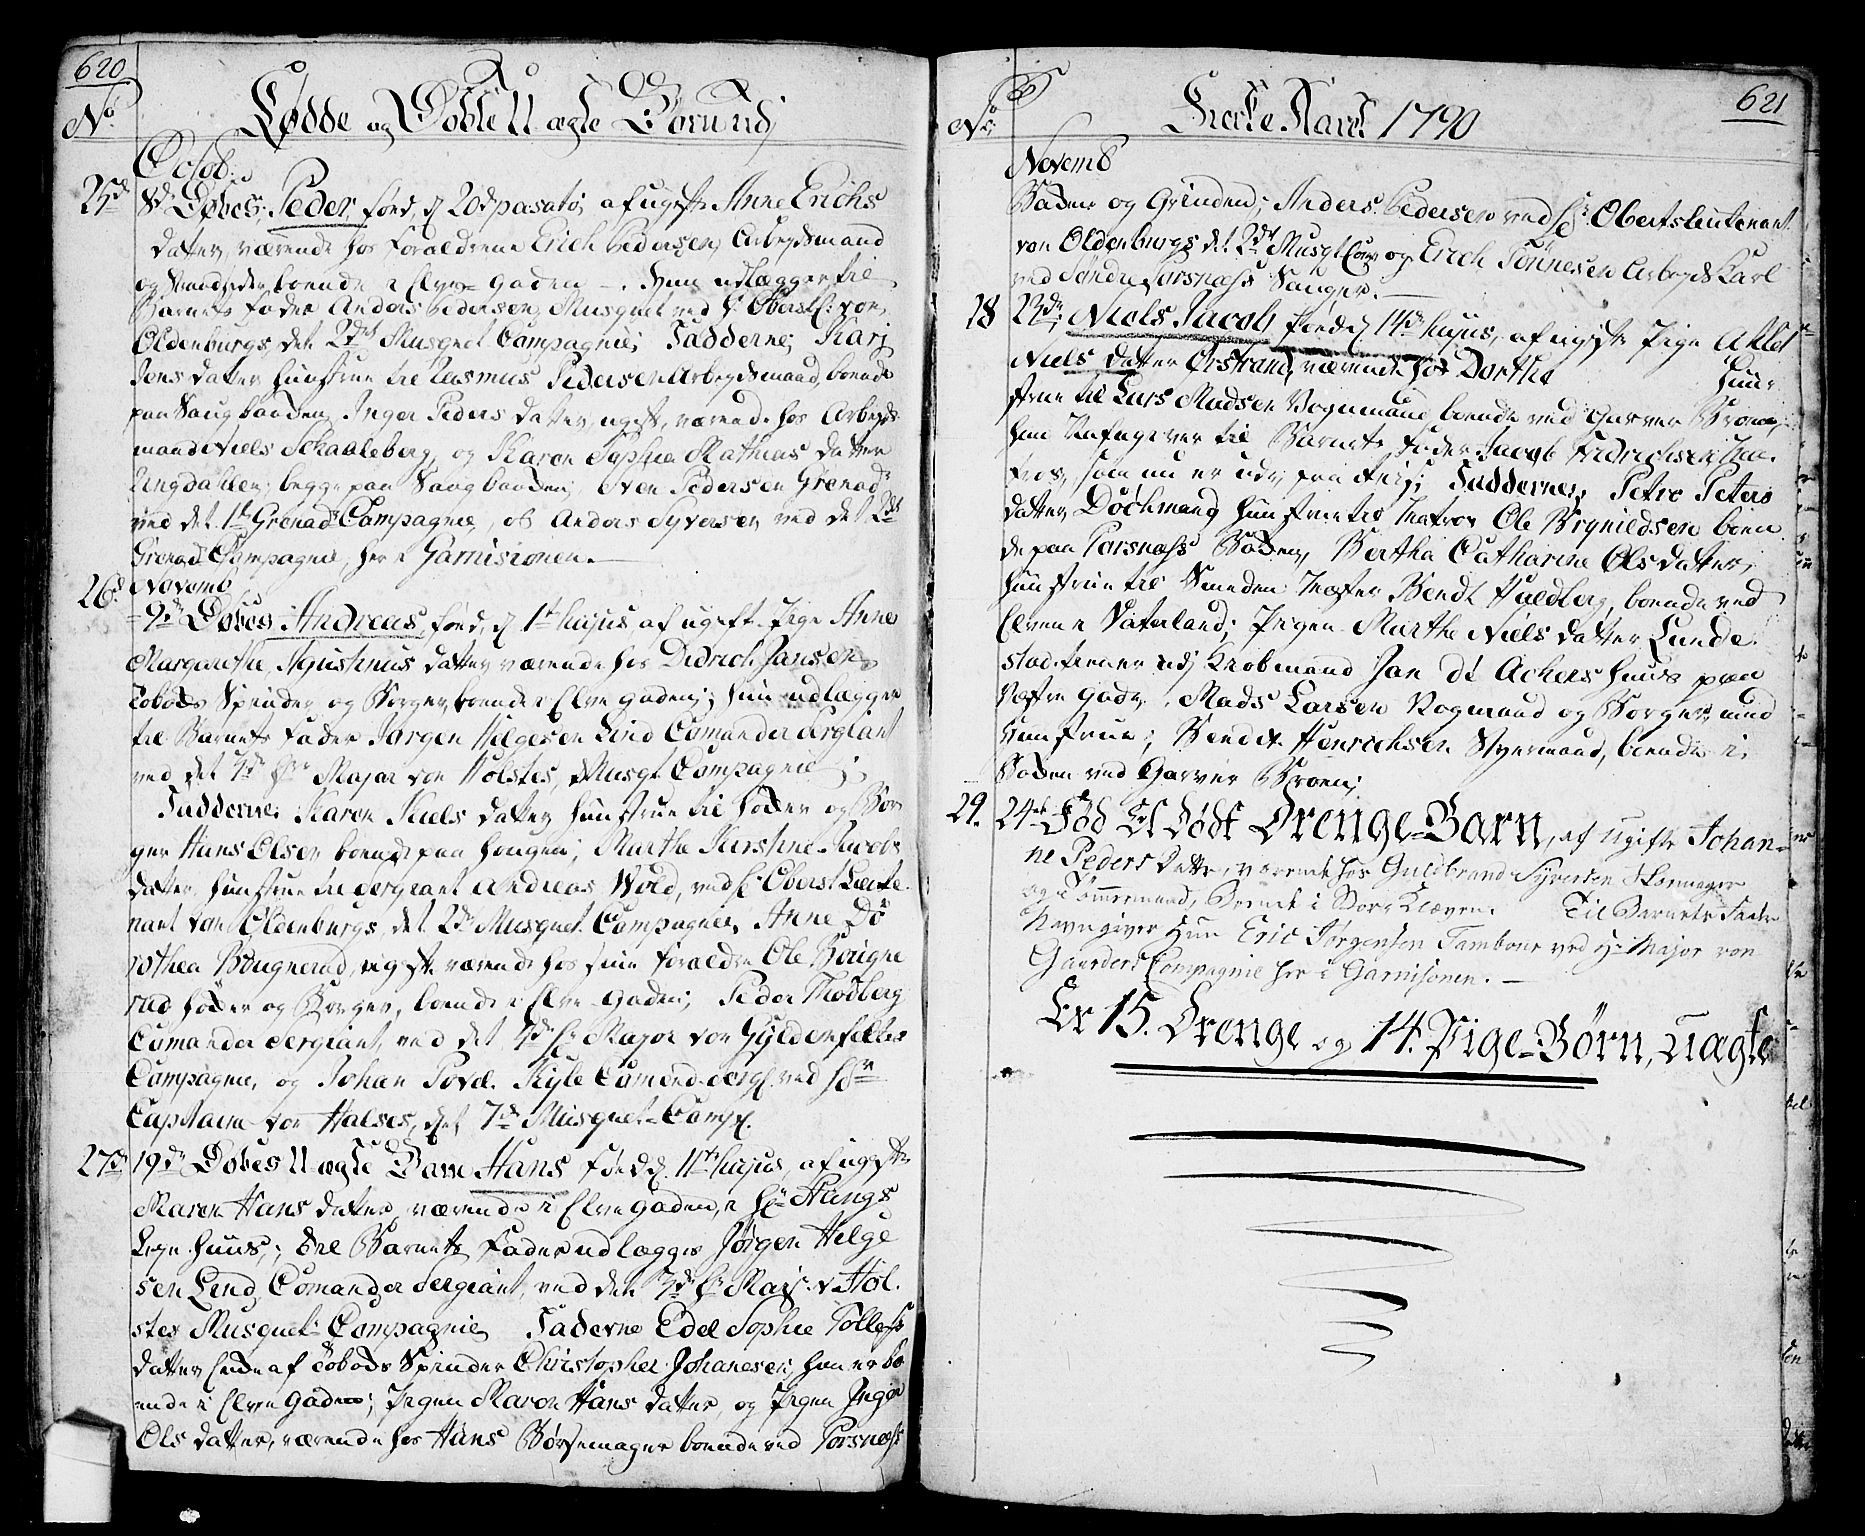 620
No
Fødde og Døbte Uægte Børn udj
Octob:
25d 8de Døbes; Peder, fød, d 20d pasato; af ugifte Anne Erichs
datter, værende hos Forældrene Erich Pedersen, Arbeydsmand
og boende i Elve Gaden. Hun udlægger til
Barnets fader Anders Pedersen, Musquet ved Hr Oberstl: von
Oldenburgs, det 2det Musquet Compagnie; Fadderne; Kari
Jens datter hunstrue til Rasmus Pedersen Arbeydsmand, boende
paa Saugbanden, Inger Peders datter ugift, værende hos Arbeyds
mand Niels Schaaleberg, og Karen Sophia Mathias datter
Ringdallen; begge paa Saugbanden; Sven Pedersen Grenad:
ved det 1te Grenad: Compagnie, og Anders Syversen ved det 2det
Grenad: Compagnie, her i Garnisionen.
26d Novemb
9de Døbes Andreas, fød, d 1te hujus, af ugift Pige Anne
Margarethe Agustinus datter værende hos Didrich Jansen
Tobaks Spinder og Borger, boende i Elve gaden; hun udlægger
til Barnets fader Jørgen Helgesen Lind Comander Sergiant
ved det 3de Hr Major von Holstes, Musqt Compagnie;
Fadderne: Karen Niels datter hunstrue til Høker og Bor
ger Hans Olsen boende paa Haugen; Marthe Kirstine Jacobs
datter, hunstrue til Sergiant Andreas Wold, ved Hr Oberst Lieute
nant von Oldenburgs, det 2de Musquet Compagnie, Anne Do
rothea Bougnerud, ugift værende hos sine forældre Ole Bougne
rud Høker og Borger, boende i Elve Gaden; Peder Modberg
Comander Sergiant, ved det 4de Hr Major von Gyldenfeltes
Compagnie, og Johan Povel Kyle Comand. Serg. ved Hr
Captain von Halses, det 7de Musquet-Comp.
27de 19de Døbes Uægte Barn Hans fød d. 11te hujus, af ugifte
Maren Hans datter værende i Elve gaden, i Hr Hangs
Leye-huus; til Barnets Fader udlægges Jørgen Helge
sen Lind, Comander Sergiant, ved det 3de Hr Maj: v. Hol
stes Musquet: Compagnie, Fadderne Edel Sophie Tolless
datter Enke af Tobaks Spinder Christopher Johanesen, hun er bo
ende i Elve Gaden; Pigen Maren Hans datter, og Pigen Inger
Ols datter, værende hos Hans Børsemager boende ved Forsness
621
No
Kirke Aaret 1790
Novemb
Baden og Grinden; Anders Pedersen ved Hr Oberstleutenant
von Oldenburgs det 2det Musqt Comp og Erich Tønnesen Arbeyds Karl
ved Søndre Forsness Sauger.
28 23de; Niels Jacob fød d 14de hujus, af ugift Pige Ahlet
Niels datter Ørstrand, værende hos Dorthe Huu
strue til Lars Madsen Vogmand, boende ved Garver Broen,
hun udgiver til Barnets Fader Jacob Fredrichsen
som nu er ude paa Fadderne, Petro Peters
datter Dochmand hunstrue til Ole Brynildsen boen
de paa Forsness Baden, Bertha Catharine Olsdatter,
hunstrue til Smeden Mester Bendt Huldberg, boende ved
Elven i Vaterland; Pigen Marthe Niels datter Lunde
stad Krobmand Jan di Ackers huus paa
Gade, Mads Larsen Vogmand og Borger, med
hunstrue; Bendix Henrichsen Styermand, boende i
Baden ved Garver Broen;
29. 24de Fød Et Dødt Drenge-Barn, af Ugifte Johan-
ne Peders datter, værende hos Guldbrand Syversen Skomager
og Tømmermand, Boende i Bors Kleven. Til Barnets Fader
Navngiver Hun Eric Jørgensen Tambour ved Hr Major von
Gaarders Compagnie her i Garnisonen.
Er 15. Drenge og 14. Pige-Børn, uægte